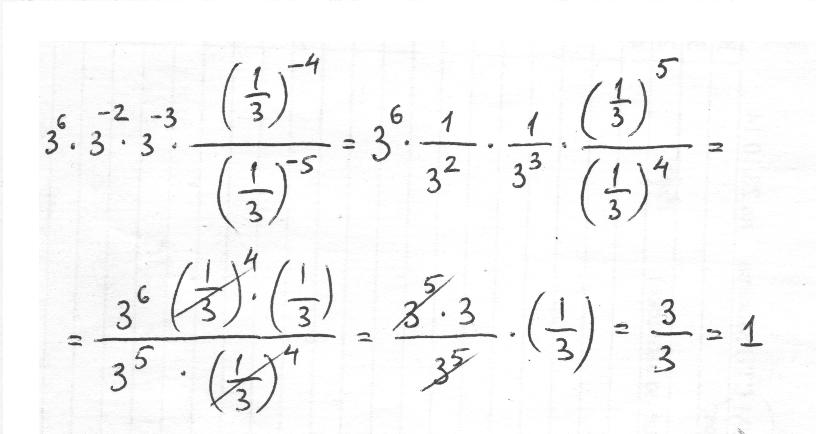 3^6 · 3^-2 · 3^-3 · (1/3)^-4 / (1/3)^-5 = 3^6 · 1/3^2 · 1/3^3 · (1/3)^5 / (1/3)^4 =
= 3^6 (1/3)^4 · (1/3) / 3^5 · (1/3)^4 = 3^5 · 3 / 3^5 · (1/3) = 3/3 = 1